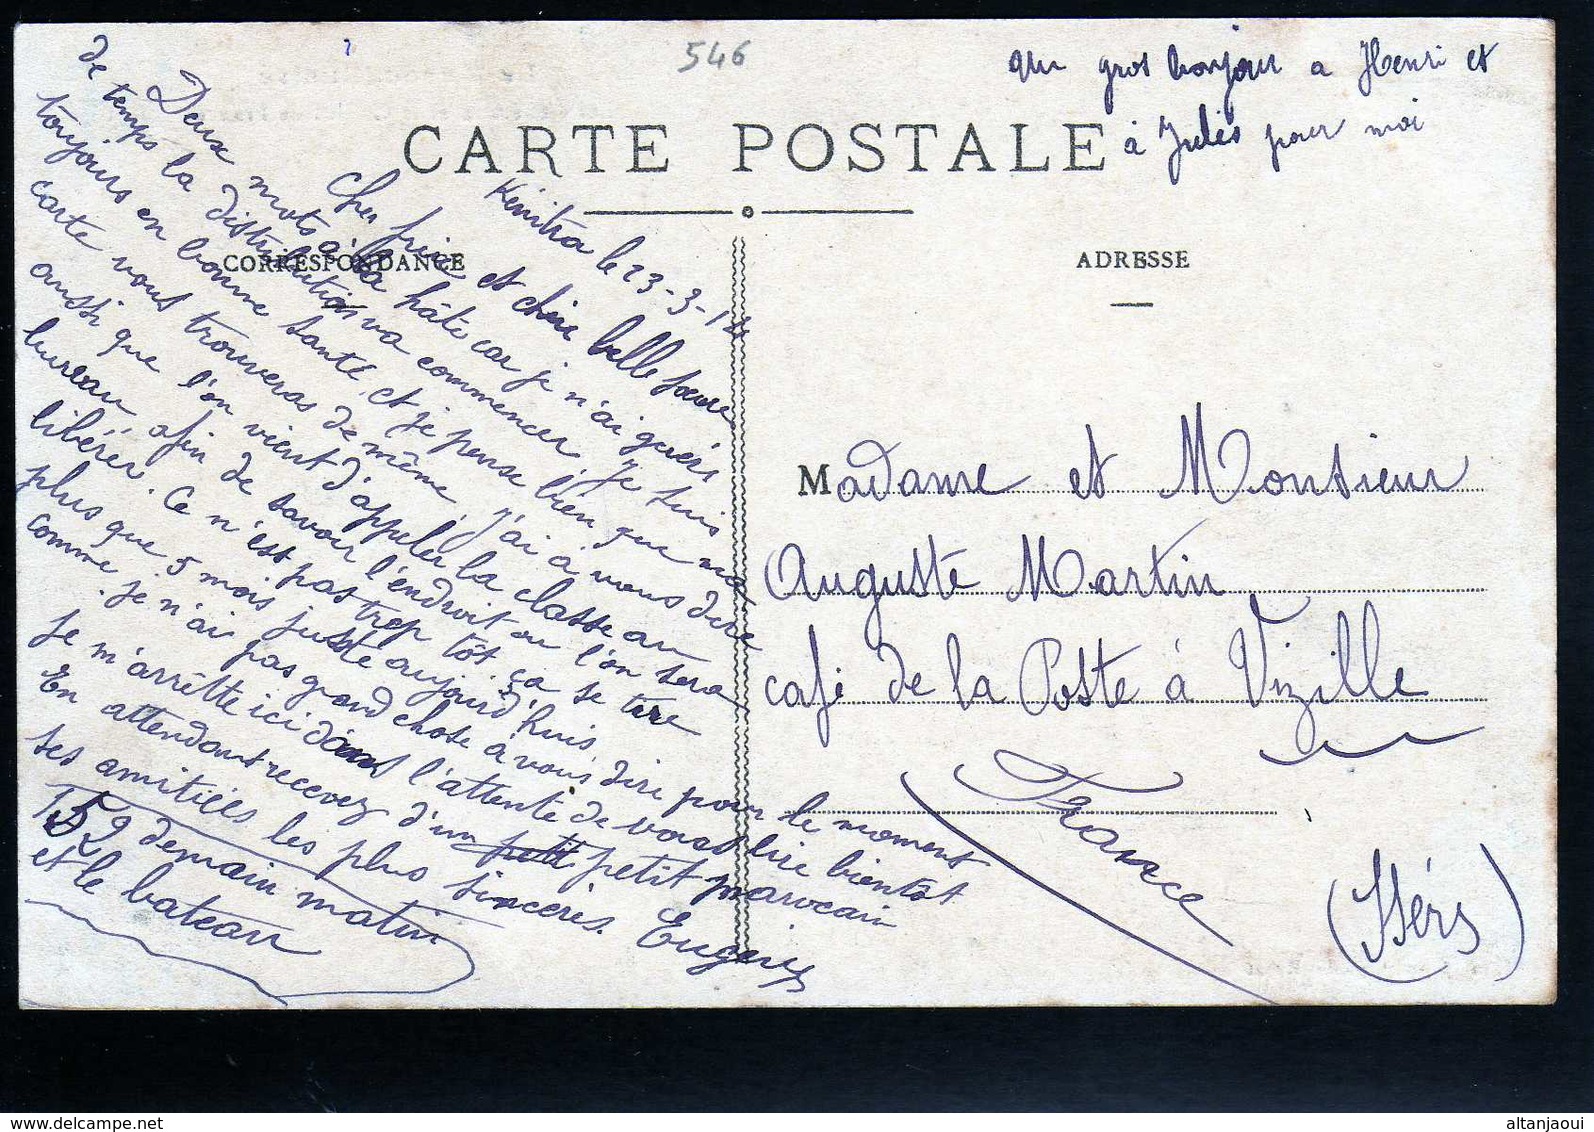 546
un gros bonjour a Henri et
à Jules pour moi
CARTE POSTALE
CORRESPONDANCE
ADRESSE
Kénitra le 23-3-14
Cher frère et chère belle soeur
Deux mots à la hâte car je n'ai guèrs
de temps la distribution va commencer. Je suis
toujours en bonne santé, et je pense bien que ma
carte vous trouveras de même, j'ai à vous dire
aussi que l'on vient d'appeler la classe au
bureau afin de savoir l'endroit ou l'on sera
libérer. Ce n'est pas trop tôt ça se tire
plus que 5 mois juste aujourd'huis.
comme je n'ai pas grand chose à vous dire pour le moment
je m'arrêtte ici dans l'attente de vous lire bientôt
En attendant recevez d'un petit petit marocain
ses amitiées les plus sincères. Eugène
159 demain matin
et le bateau
Madame et Monsieur
Auguste Martin
café de la Poste à Vizille
France
(Isérs)
altanjaoui